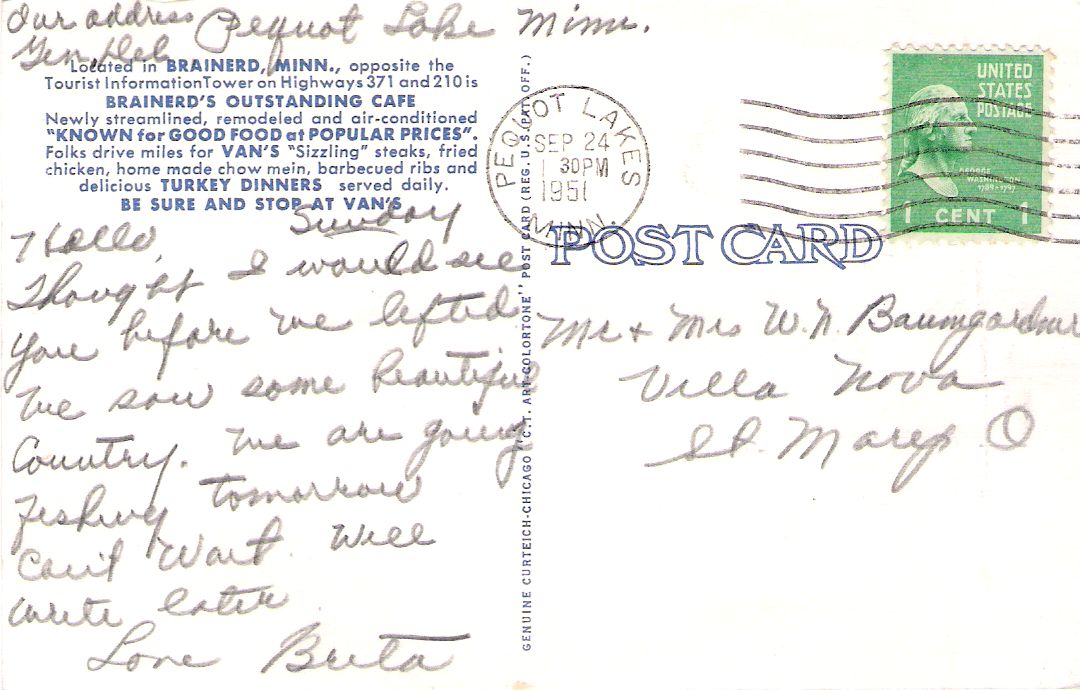 Our address Pequot Lake Minn.
Gen. Del.
Located in BRAINERD, MINN., opposite the
Tourist Information Tower on Highways 371 and 210 is
BRAINERD'S OUTSTANDING CAFE
Newly streamlined, remodeled and air-conditioned
"KNOWN for GOOD FOOD at POPULAR PRICES".
Folks drive miles for VAN'S "Sizzling" steaks, fried
chicken, home made chow mein, barbecued ribs and
delicious TURKEY DINNERS served daily.
BE SURE AND STOP AT VAN'S
Sunday
Hello,
Thought I would see
you before we lefted
We saw some beautiful
Country. We are going
Fishing tomorrow
Can't Wait. Will
write later
Love Breta
GENUINE CURTEICH-CHICAGO "C.T. ART-COLORTONE" POST CARD (REG. U.S. PAT. OFF.)
PEQUOT LAKES
SEP 24
1 30PM
1951
MINN.
UNITED
STATES
POSTAGE
GEORGE
WASHINGTON
1789-1797
1 CENT 1
POST CARD
Mr & Mrs W. N. Baumgardner
Villa Nova
St. Marys O